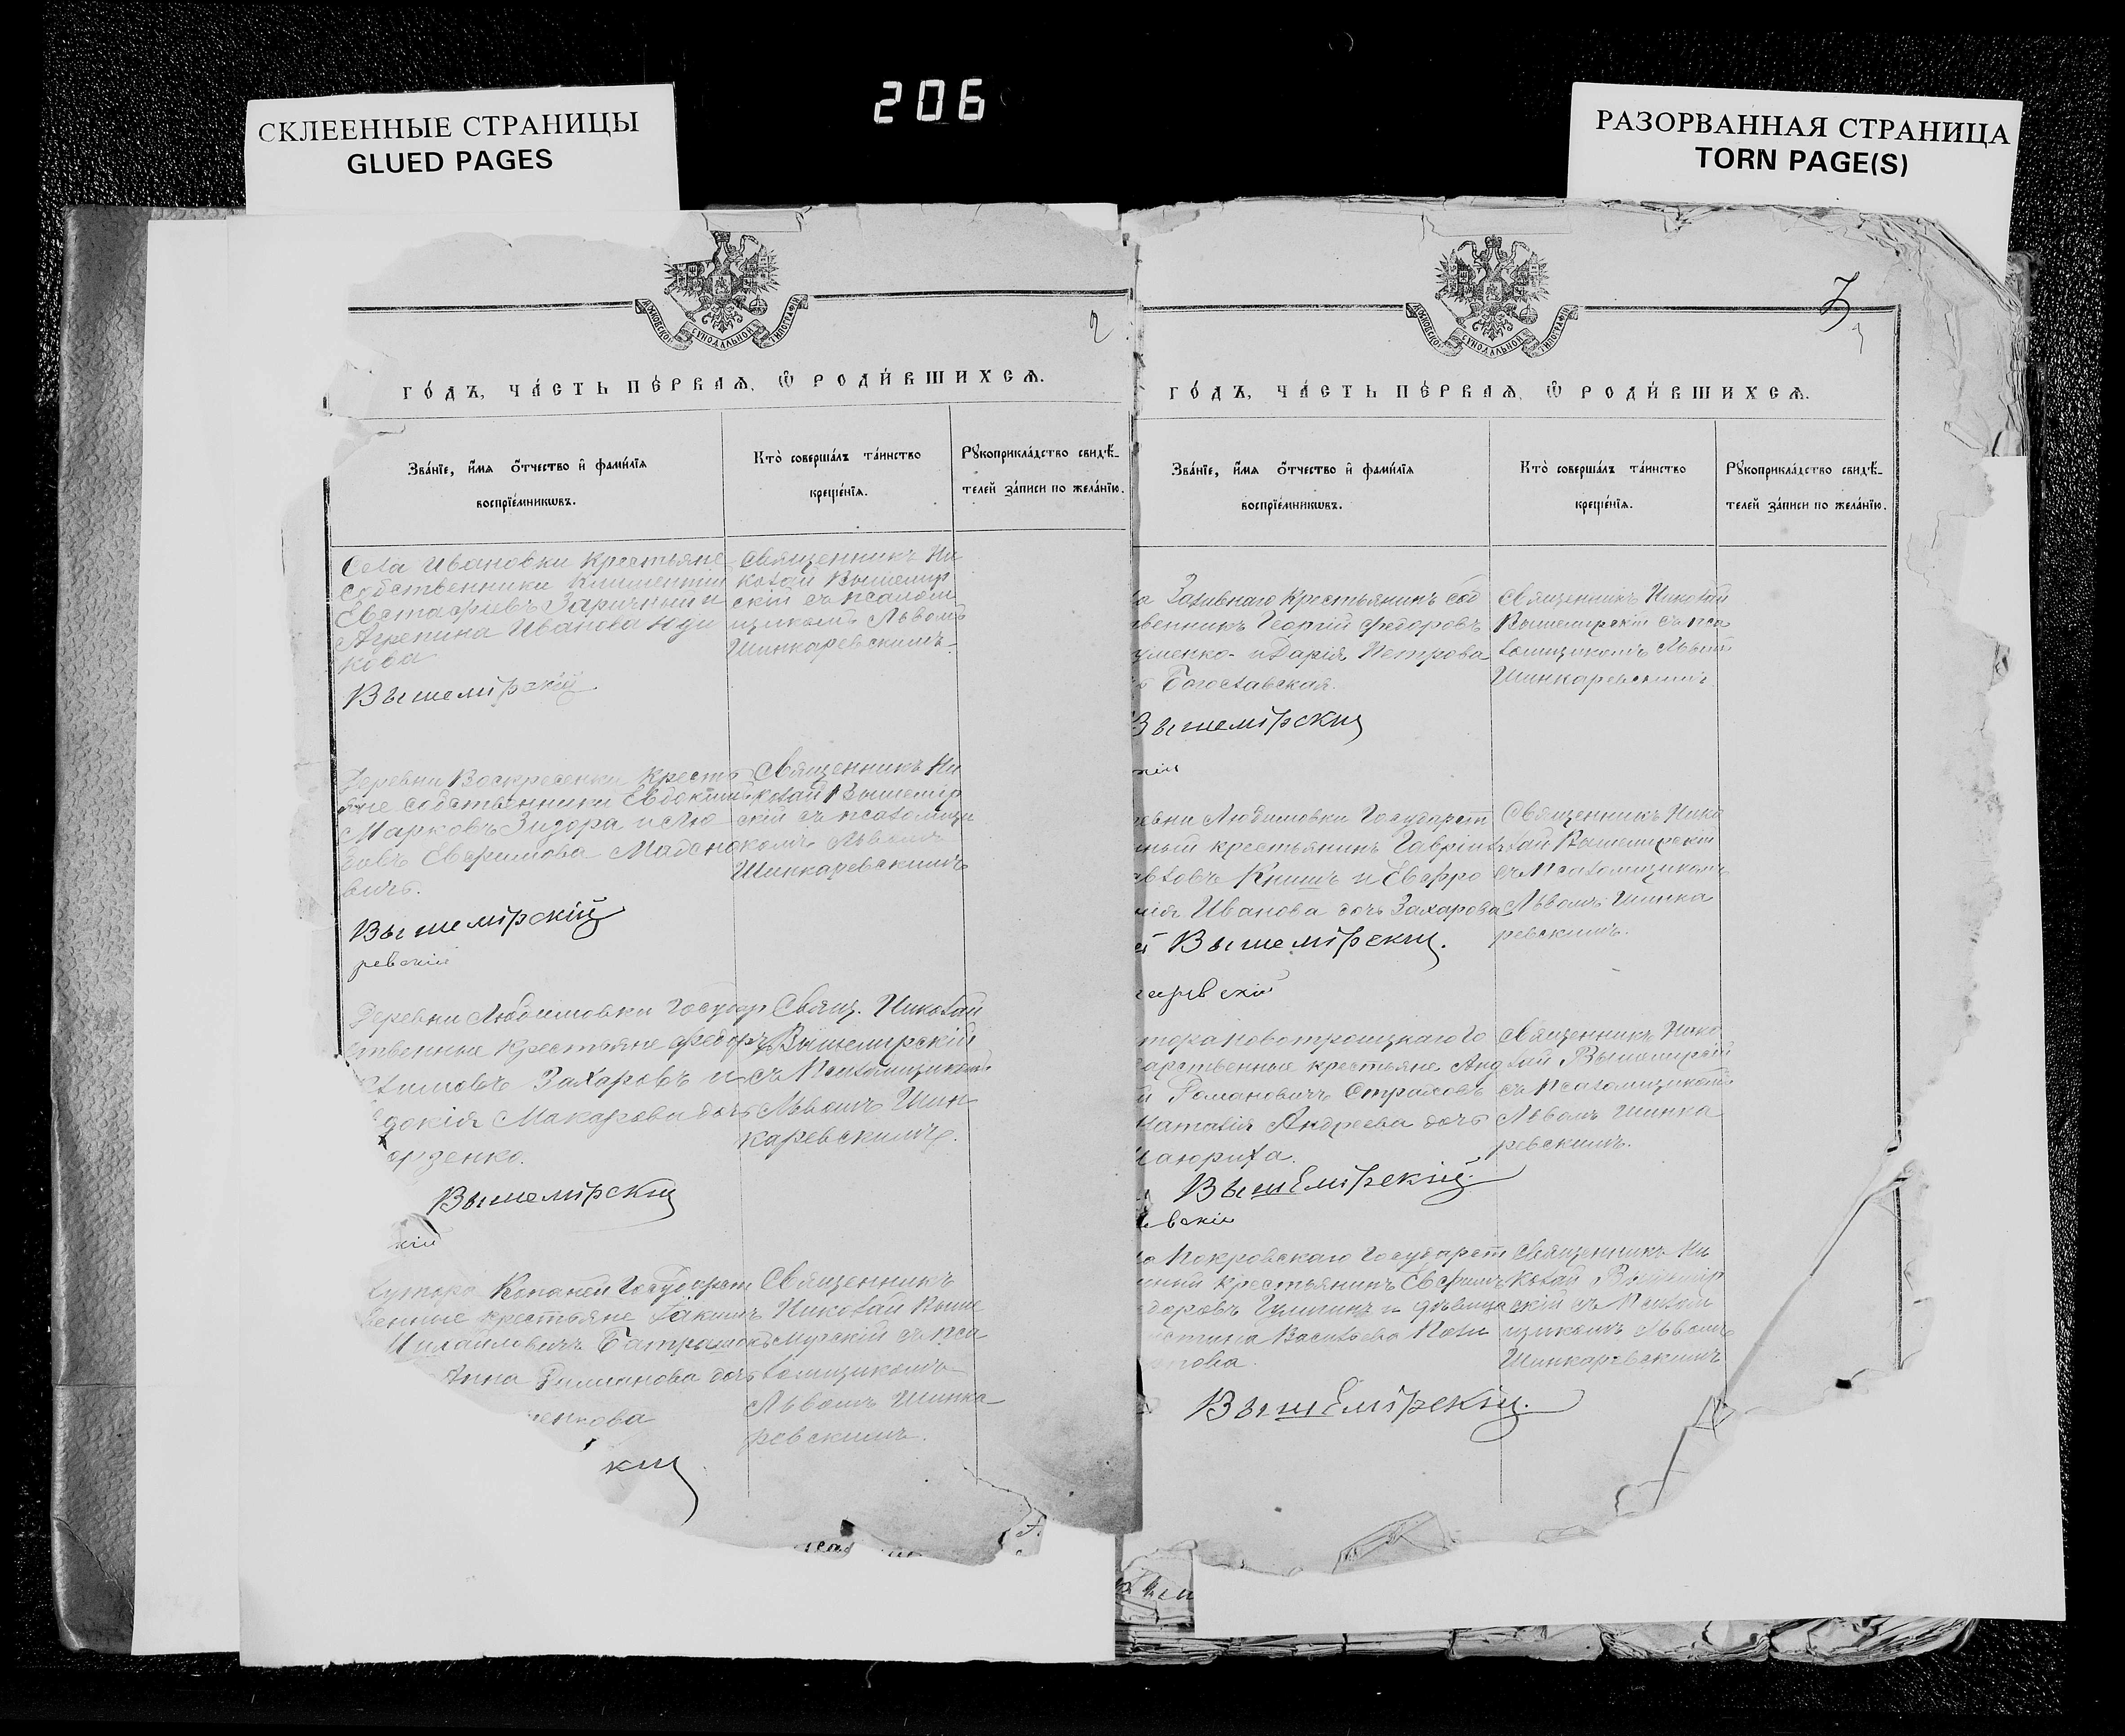 СКЛЕЕННЫЕ СТРАНИЦЫ
GLUED PAGES
206
РАЗОРВАННАЯ СТРАНИЦА
TORN PAGE(S)
МОСКОВСКОЙ СѴНОДАЛЬНОЙ ТИПОГРАФІИ
2
ГО́ДЪ, ЧА́СТЬ ПЕ́РВАѦ, Ѿ РОДИ́ВШИХСѦ.
Зва́нїе, и҆́мя ѻ҆́тчество и҆ фами́лїя
воспрїе́мникѡвъ.
Кто̀ соверша́лъ та́инство
креще́нїя.
Рꙋкоприкла́дство свидѣ́-
телей за́писи по жела́нїю.
Села Ивановки крестьяне
собственники Климентий
Евстафиевъ Заричный и
Агрепина Иванова Куц
кова
Вышемірскій
Священникъ Ни
колай Вышемир
скій съ псалом
щикомъ Львомъ
Шинкаревскимъ
Деревни Воскресенки кресть
яне собственники Евдокимъ
Марковъ и Лю
бовь Ефимова
вичъ.
Вышемірскій
ревскій
Священникъ Ни
колай Вышемир
скій съ псаломщи
комъ Львомъ
Шинкаревскимъ
Деревни Любимовки Государ
ственные крестьяне Федоръ
Захаровъ и
докія Макарова дочь
Вышемірскій
кій
Свящ. Николай
Вышемирскій
съ Псаломщикомъ
Львомъ Шин
каревскимъ.
Хутора Копаней Государст
венные крестьяне
Михайловичъ
Анна дочь
енкова
кій
Священникъ
Николай Выше
мирскій съ пса
ломщикомъ
Львомъ Шинка
ревскимъ.
3
ГО́ДЪ, ЧА́СТЬ ПЕ́РВАѦ, Ѿ РОДИ́ВШИХСѦ.
МОСКОВСКОЙ СѴНОДАЛЬНОЙ ТИПОГРАФІИ
Зва́нїе, и҆́мя ѻ҆́тчество и҆ фами́лїя
воспрїе́мникѡвъ.
Кто̀ соверша́лъ та́инство
креще́нїя.
Рꙋкоприкла́дство свидѣ́-
телей за́писи по жела́нїю.
а Заливнаго Крестьянинъ соб
твенникъ Георгій Федоровъ
уменко и Дарія Петрова
Богославская.
Вышемірскій
скій
Священникъ Николай
Вышемирскій съ пса
ломщикомъ Львомъ
Шинкаревскимъ
евни Любимовки Государст
ный крестьянинъ Гавріилъ
авловъ Книшъ и Евфро
нія Иванова дочь Захарова
Вышемірскій.
аревскій
Священникъ Нико
лай Вышемирскій
съ Псаломщикомъ
Львомъ Шинка
ревскимъ.
тора Новотроицкаго Го
дарственные крестьяне Анд
й Романовичъ Страховъ
Наталія Андреева дочь
Вышемірскій
вскій
Священникъ Нико
лай Вышемирскій
съ Псаломщикомъ
Львомъ Шинка
ревскимъ.
а Покровскаго Государст
нный крестьянинъ Ефимъ
доровъ и дѣвица
истина Васильева
Вышемірскій.
Священникъ Ни
колай Вышемір
скій съ Псалом
щикомъ Львомъ
Шинкаревскимъ